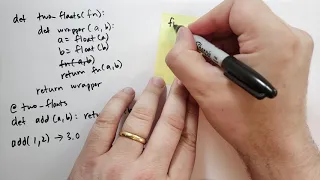 def two_floats(fn):
def wrapper(a,b):
a = float(a)
b = float(b)
fn(a,b)
return fn(a,b)
return wrapper
@ two_floats
def add(a,b): ret
add(1,2) → 3.0
f